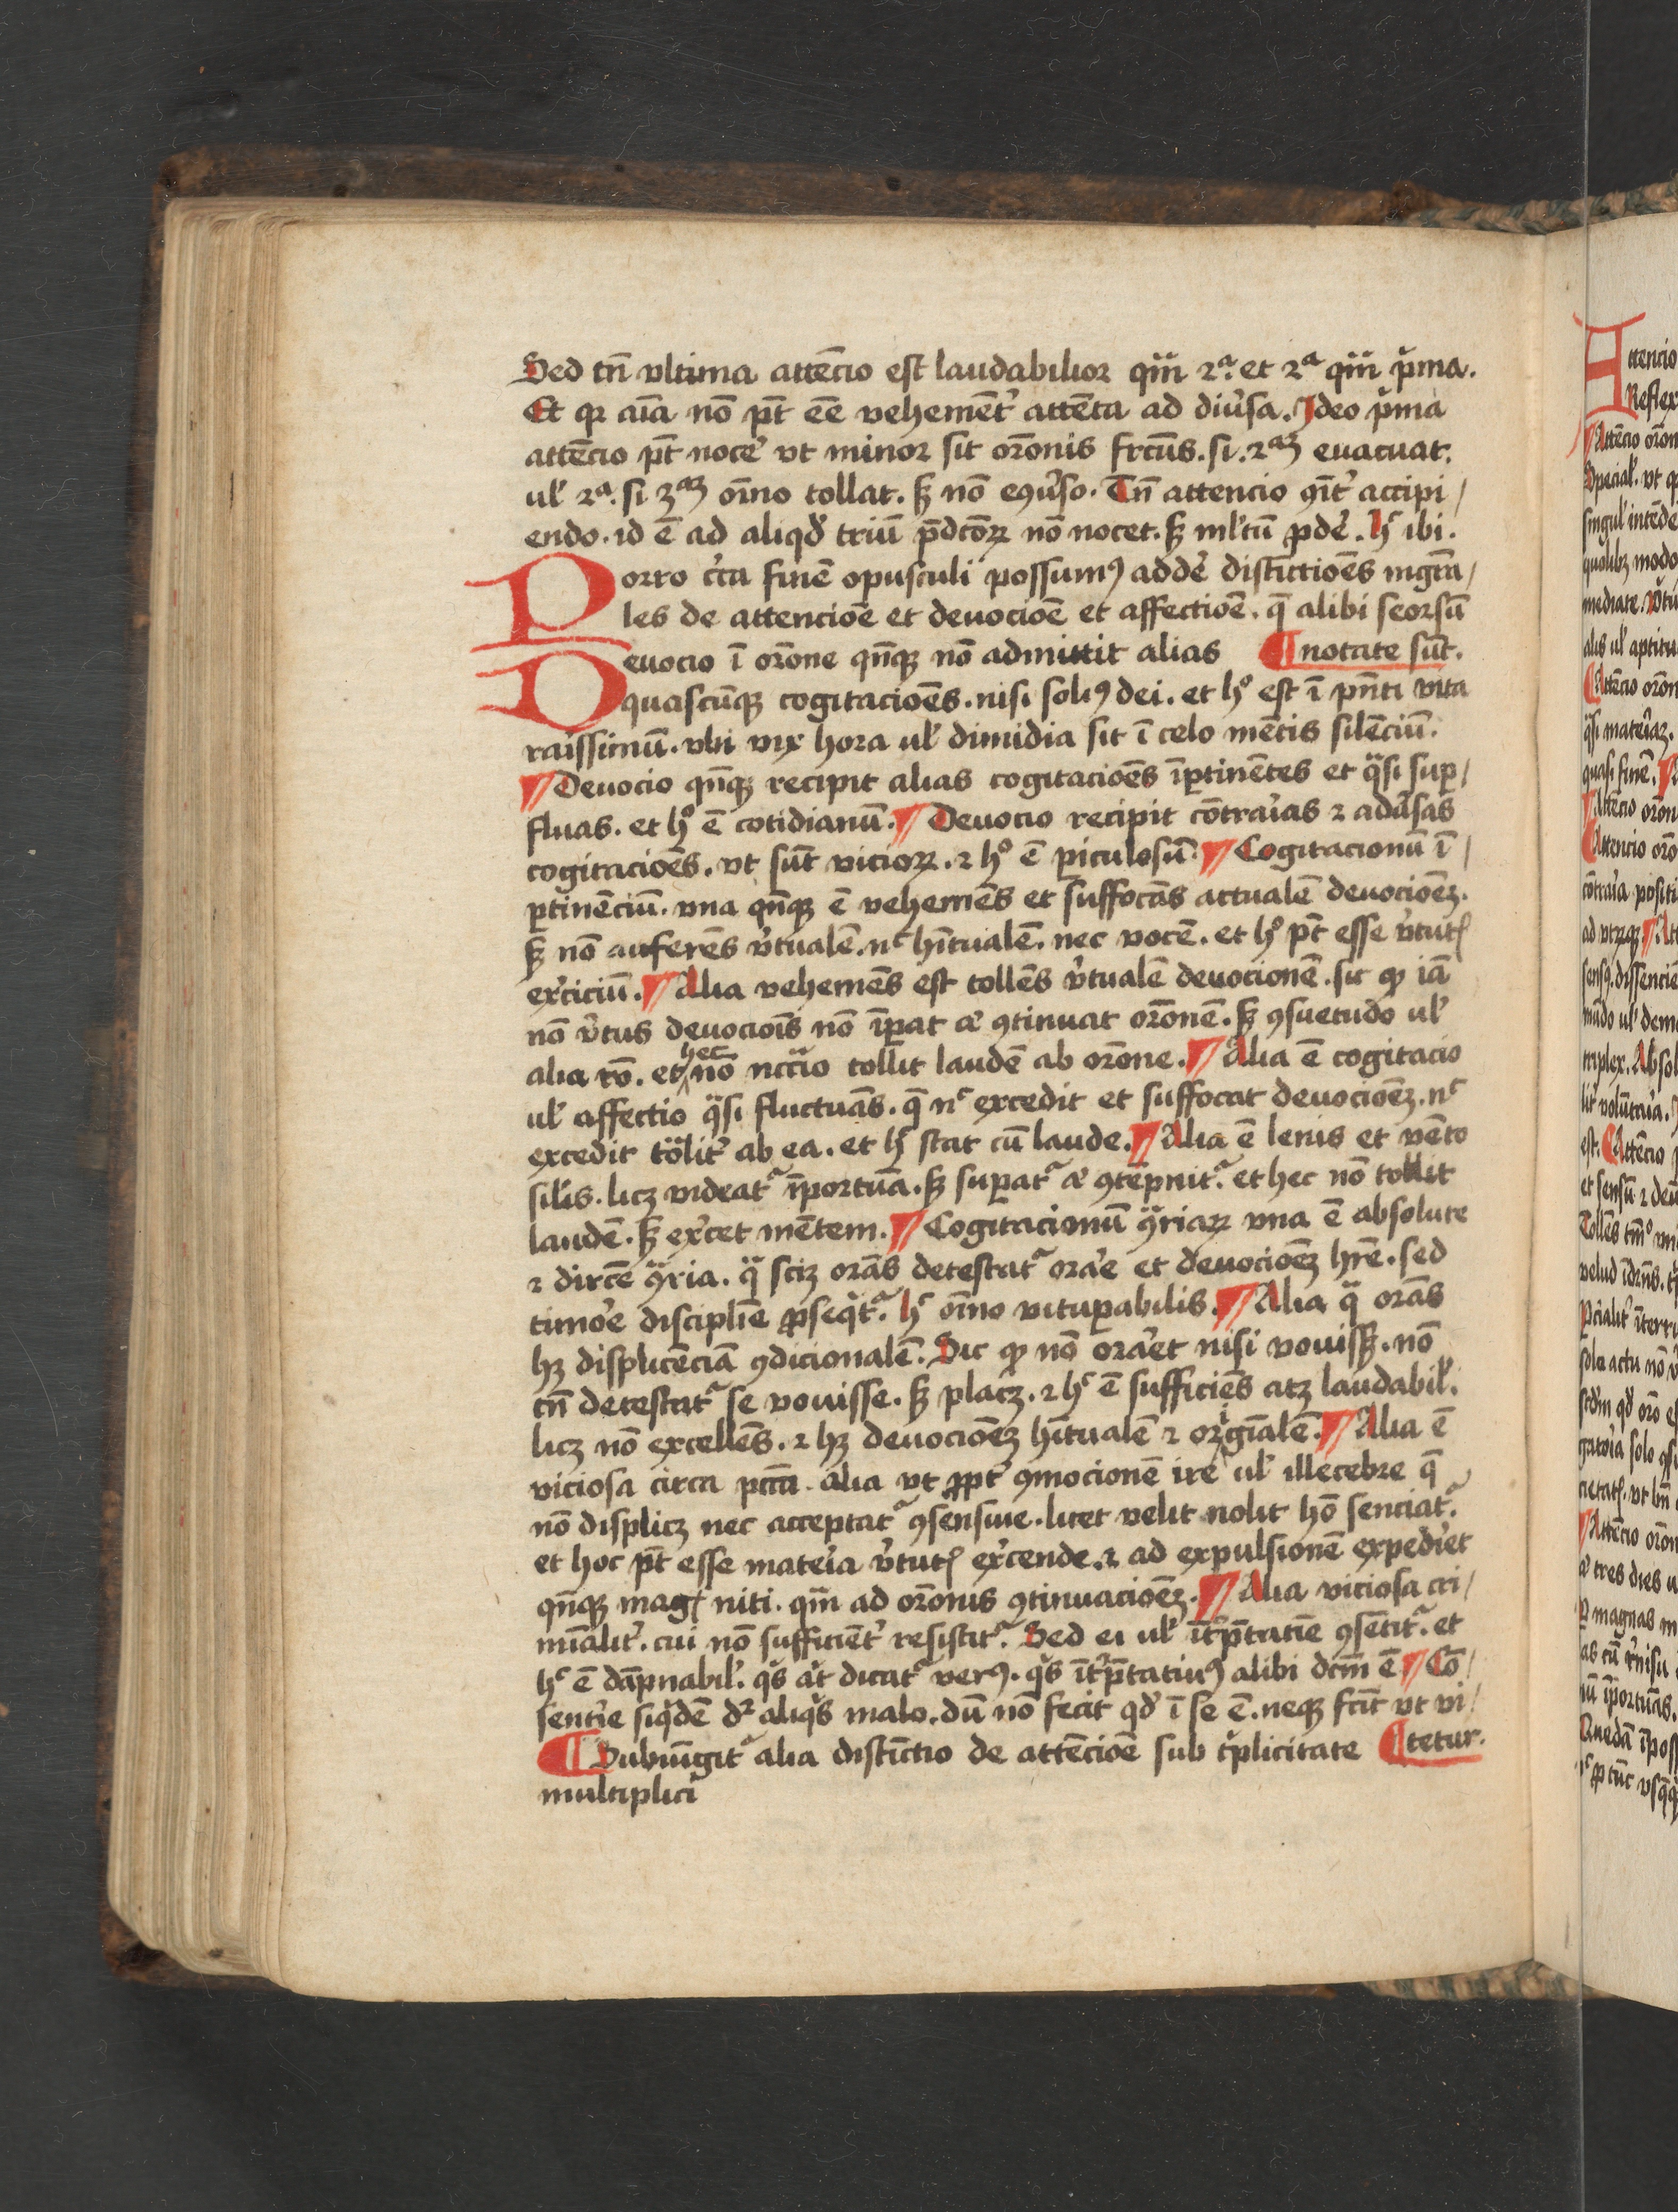 Sed tn̄ vltima attēcio est laudabilior qm̄ 2ª. et 2ª qm̄ pͥma.
Et qꝛ aīa nō pt̄ eē vehemēt͛ attēta ad diu͛sa. Ideo pͥma
attēcio pt̄ noce͛ vt minor sit orōnis frctūs. si .2ªꝫ euacuat.
ul̛ 2ª. si 3ªꝫ oīno tollat. sꝫ nō eꝯu͛so. Tn̄ attencio ꝯīt͛ accipi/
endo. id ē ad aliqd̛ triū p̄dcōꝝ nō nocet. sꝫ ml̛tū ꝓde͛. hᶜ ibi.
Porro c͛ca finē opusculi possumꝰ adde͛ distīctiōes mgrā/
les de attencioē et deuocioē et affectioē. q̄ alibi seorsū
¶ notate sūt.
Deuocio ī orōne qn̄qꝫ nō admittit alias
quascūqꝫ cogitaciōes. nisi soliꝰ dei. et hº est ī pn̄ti vita
raissimū. vbi vix hora ul̛ dimidia sit ī celo mētis silēciū.
¶ Deuocio qn̄qꝫ recipit alias cogitaciōes īꝑtinētes et qᵃsi suꝑ/
fluas. et hº ē cotidianū. ¶ Deuocio recipit cōtraͥas ⁊ adu͛sas
cogitaciōes. vt sūt vicioꝝ. ⁊ hº ē ꝑiculosū. ¶ Cogitacionū ī/
ꝑtinēciū. vna qn̄qꝫ ē vehemēs et suffocās actualē deuocioēꝫ.
sꝫ nō auferēs v͛tualē. nᶜ hītualē. nec vocē. et hº pt̄ esse v͛tutꝭ
ex͛ciciū. ¶ Alia vehemēs est tollēs v͛tualē deuocionē. sic ꝙ iā
nō v͛tus deuociōis nō īꝑat aͨ ꝯtinuat orōnem. sꝫ ꝯsuetudo ul̛
alia rō. et hec nō nccͣio tollit laudē ab orōne. ¶ Alia ē cogitacio
ul̛ affectio qᵃsi fluctuās. q̄ nᶜ excedit et suffocat deuocioēꝫ. nᶜ
excedit tōlit͛ ab ea. et hᶜ stat cū laude. ¶ Alia ē lenis et vēto
sil̛is. licꝫ videatᷣ īportūa. sꝫ suꝑatᷣ aͨ ꝯtēpnitᷣ. et hec nō tollit
laudē. sꝫ ex͛cet mētem. ¶ Cogitacionū ꝯͣriaꝝ vna ē absolute
⁊ dircē ꝯͣria. qᵃ sciꝫ orās detestatᷣ ora͛e et deuocioēꝫ hr̄e. sed
timo͛e disciplīe ꝓseqͥtᷣ. hᶜ oīno vituꝑabilis. ¶ Alia qᵃ orās
hꝫ displicēciā ꝯdicionalē. Sic ꝙ nō ora͛et nisi vouissꝫ. nō
tn̄ detestatᷣ se vouisse. sꝫ placꝫ. ⁊ hᶜ ē sufficiēs atꝫ laudabil̛.
licꝫ nō excellēs. ⁊ hꝫ deuocioēꝫ hītualē ⁊ origīalē. ¶ Alia ē
viciosa circa pctā. alia vt ꝓpt͛ ꝯmocionē ire ul̛ illecebre q̄
nō displicꝫ nec acceptatᷣ ꝯsensiue. licet velit nolit hō senciatᷣ.
et hoc pt̄ esse mate͛ia v͛tutꝭ ex͛cende. ⁊ ad expulsionē expedi͛et
qn̄qꝫ magꝭ niti. qm̄ ad orōnis ꝯtinuacioēꝫ. ¶ Alia viciosa cri/
mīalit͛. cui nō sufficiēt͛ resistitᷣ. Sed ei ul̛ īt͛p̄tatīe ꝯsētitᷣ. et
hᶜ ē dāpnabil̛. qͥs aͧt dicatᷣ verꝰ. qͥs īt͛p̄tatiuꝰ alibi dcm̄ ē ¶ Cō/
senti͛e siqͥdē dꝛ aliqͥs malo. dū nō fecit qd̛ ī se ē. neqꝫ fcīt vt vi/
¶ tetur.
¶ Subiūgitᷣ alia distīctio de attēcioē sub tͥplicitate
multiplici